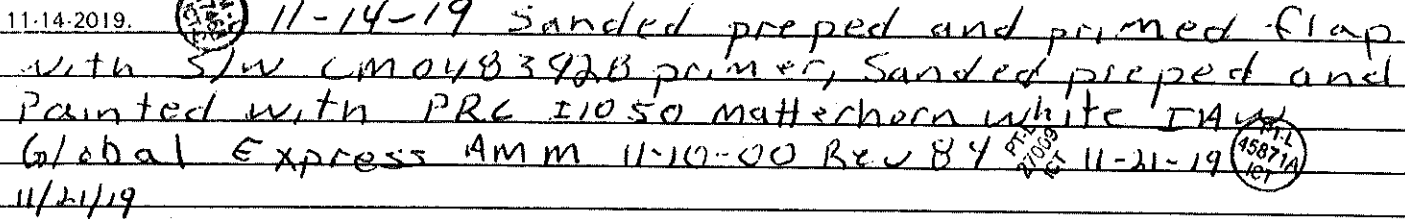 11-14-2019. 11-14-19 Sanded preped and primed flap
with S/W CM0483928 primer, Sanded preped and
Painted with PRC I1050 matterhorn white IAW
Global Express AMM 11-10-00 Rev 84 PT-L 27009 ICT 11-21-19 PT-L 45871A ICT
11/21/19